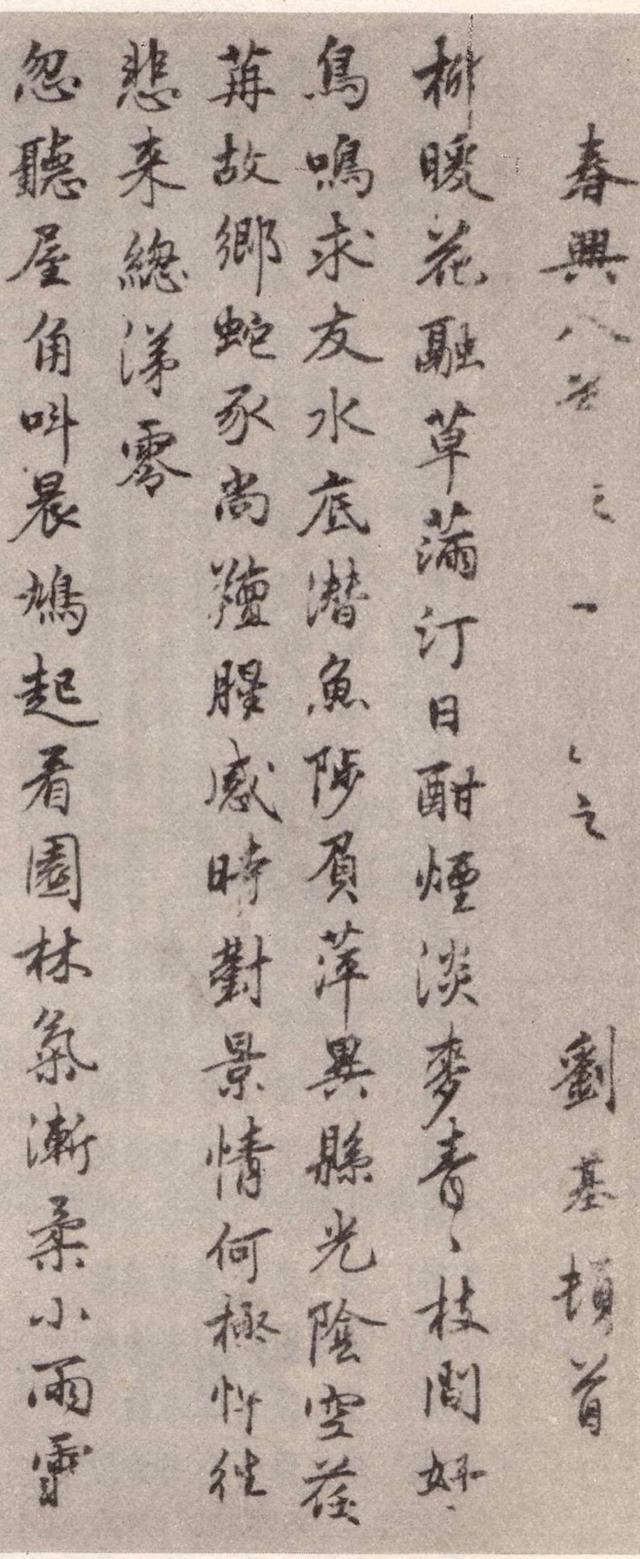 春興八首 一 之 劉基頓首
柳暖花融草滿汀日酣煙淡麥青〻枝間好
鳥鳴求友水底潛魚陟負萍異縣光陰空荏
苒故鄉蛇豕尚羶腥感時對景情何極忤往
悲來總涕零
忽聽屋角叫晨鳩起看園林氣漸柔小雨霏